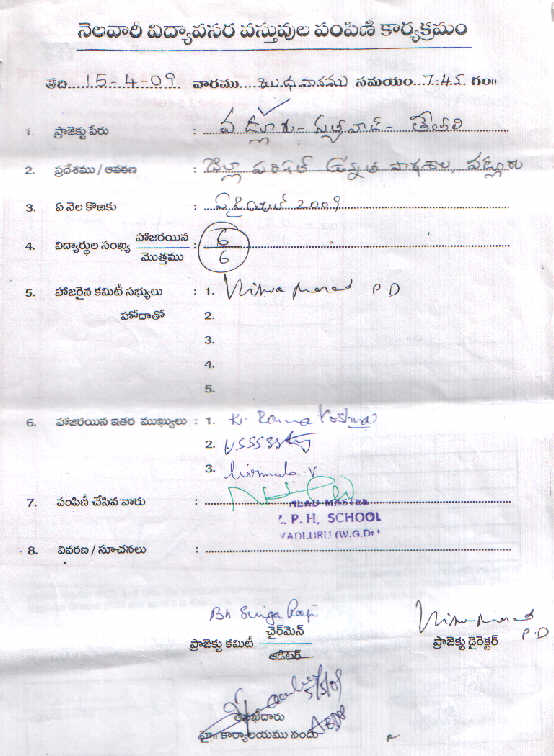 నెలవారీ విద్యావసర వస్తువుల పంపిణి కార్యక్రమం
తేది 15-4-09 వారము బుధవారము సమయం 7.45 గం॥
1. ప్రాజెక్టు పేరు : వడ్లూరు-
2. ప్రదేశము / ఆవరణ : జిల్లా పరిషత్ ఉన్నత పాఠశాల, వడ్లూరు
3. ఏ నెల కొఱకు : ఏప్రియల్ 2009
4. విద్యార్థుల సంఖ్య హాజరయిన : 6
మొత్తము 6
5. హాజరైన కమిటీ సభ్యులు : 1. P D
హోదాతో 2.
3.
4.
5.
6. హాజరయిన ఇతర ముఖ్యులు : 1. K. Rama
2.
3. Nirmala V
7. పంపిణీ చేసిన వారు :
HEAD MASTER
Z. P. H. SCHOOL
VADLURU (W.G.Dt)
8. వివరణ / సూచనలు :
ప్రాజెక్టు కమిటీ చైర్‌మెన్
ఆడిటర్
P.D
ప్రాజెక్టు డైరెక్టర్
కార్యాలయము నందు